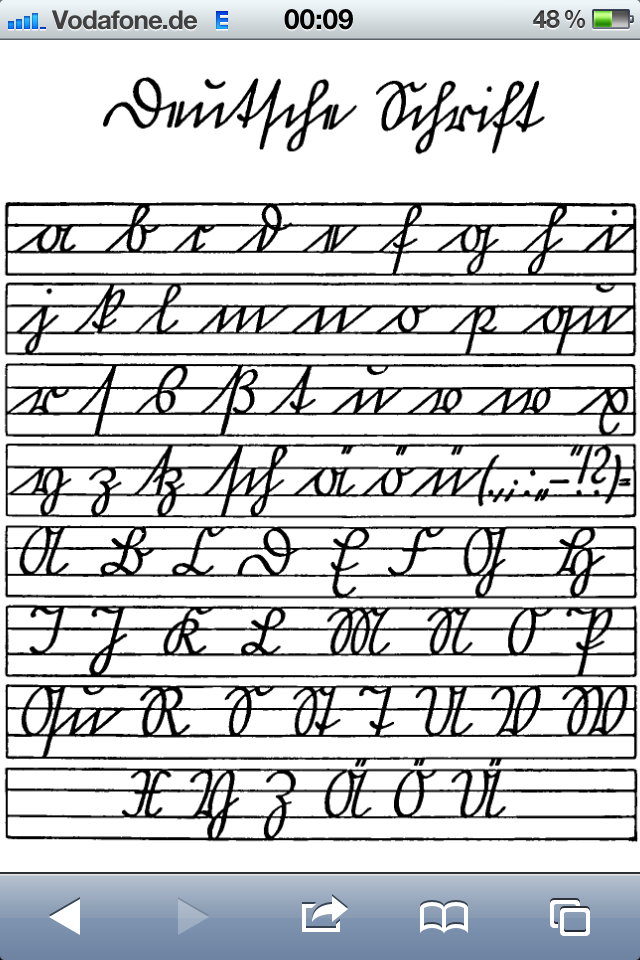 Vodafone.de E 00:09 48 %
Deutſche Schrift
a b c d e f g h i
j k l m n o p qu
r ſ s ß t u v w x
y z tz ſch ä ö ü (.,;:„–“!?)=
A B C D E F G H
I J K L M N O P
Qu R S St T U V W
X Y Z Ä Ö Ü